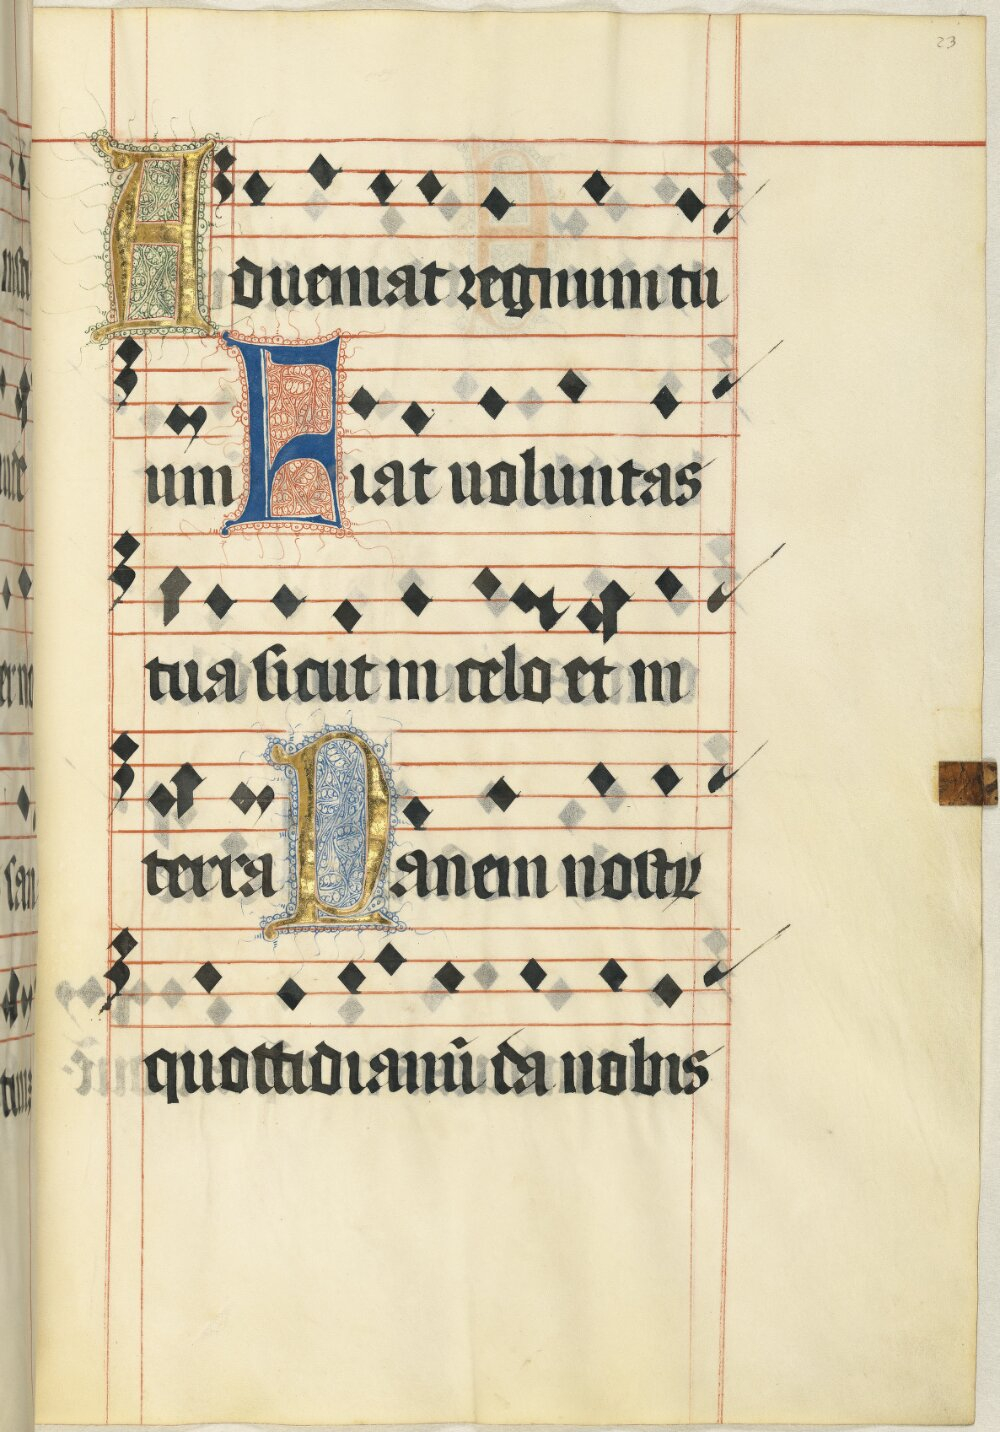 23
Adueniat regnum tu
um Fiat uoluntas
tua sicut in celo et in
terra Panem nostꝝ
quottidianū da nobis